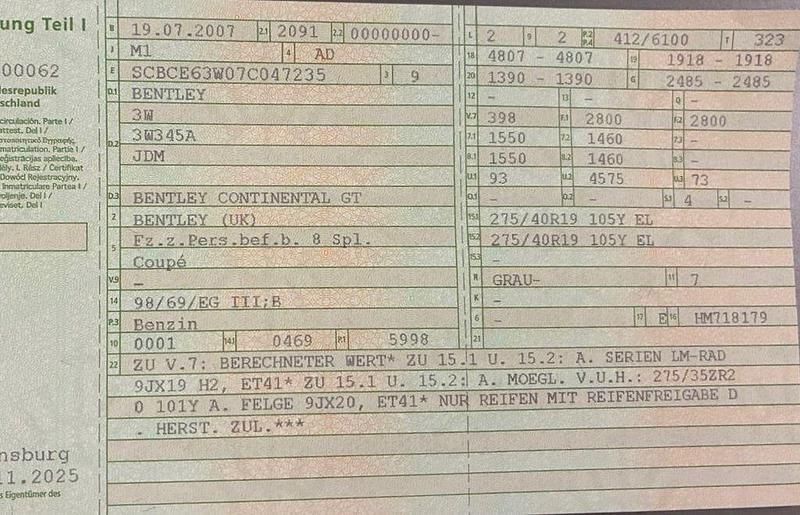 ung Teil I
00062
esrepublik
schland
circulación. Parte I /
attest. Del I /
matriculation. Partie I /
eģistrācijas apliecība.
ély. I. Rész / Certifikat
Dowód Rejestracyjny.
Inmatriculare Partea I /
voljenje. Del I /
eviset. Del I
nsburg
11.2025
s Eigentümer des
B 19.07.2007 2.1 2091 2.2 00000000-
J M1 4 AD
E SCBCE63W07C047235 3 9
D.1 BENTLEY
3W
D.2 3W345A
JDM
D.3 BENTLEY CONTINENTAL GT
2 BENTLEY (UK)
5 Fz.z.Pers.bef.b. 8 Spl.
Coupé
V.9 –
14 98/69/EG III;B
P.3 Benzin
10 0001 14.1 0469 P.1 5998
L 2 9 2 P.2 P.4 412/6100 T 323
18 4807 - 4807 19 1918 - 1918
20 1390 - 1390 G 2485 - 2485
12 – 13 – Q –
V.7 398 F.1 2800 F.2 2800
7.1 1550 7.2 1460 7.3 –
8.1 1550 8.2 1460 8.3 –
U.1 93 U.2 4575 U.3 73
O.1 – O.2 – S.1 4 S.2 –
15.1 275/40R19 105Y EL
15.2 275/40R19 105Y EL
15.3 –
R GRAU- 11 7
K –
6 – 17 E 16 HM718179
21
22 ZU V.7: BERECHNETER WERT* ZU 15.1 U. 15.2: A. SERIEN LM-RAD
9JX19 H2, ET41* ZU 15.1 U. 15.2: A. MOEGL. V.U.H.: 275/35ZR2
0 101Y A. FELGE 9JX20, ET41* NUR REIFEN MIT REIFENFREIGABE D
. HERST. ZUL.***